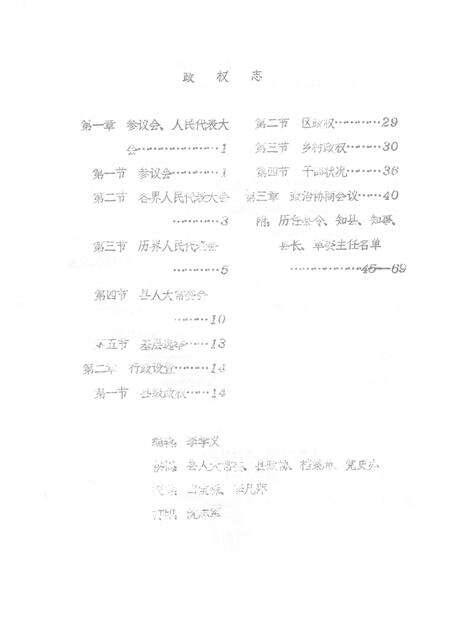 政 权 志
第一章 参议会、人民代表大
会…………………1
第一节 参议会…………1
第二节 各界人民代表大会
…………3
第三节 历界人民代表会
…………5
第四节 县人大常委会
………10
第五节 基层选举……13
第二章 行政设置………14
第一节 县级政权……14
第二节 区政权…………29
第三节 乡村政权………30
第四节 干部状况………36
第三章 政治协商会议……40
附:历任县令、知县、知事、
县长、革委主任名单
…………45—69
编辑:李
供稿:县人大常委、县政协、档案